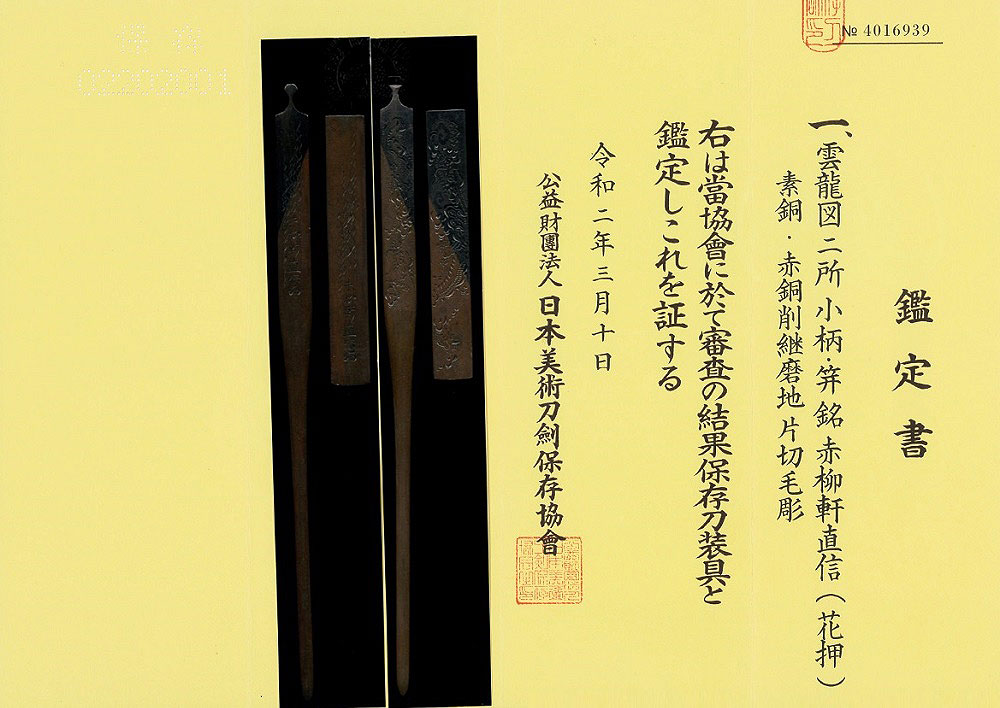 № 4016939
鑑定書
一、雲龍図二所 小柄・笄 銘 赤柳軒直信(花押)
素銅・赤銅削継磨地 片切毛彫
右は當協會に於て審査の結果保存刀装具と
鑑定しこれを証する
令和二年三月十日
公益財團法人 日本美術刀劍保存協會
02202001